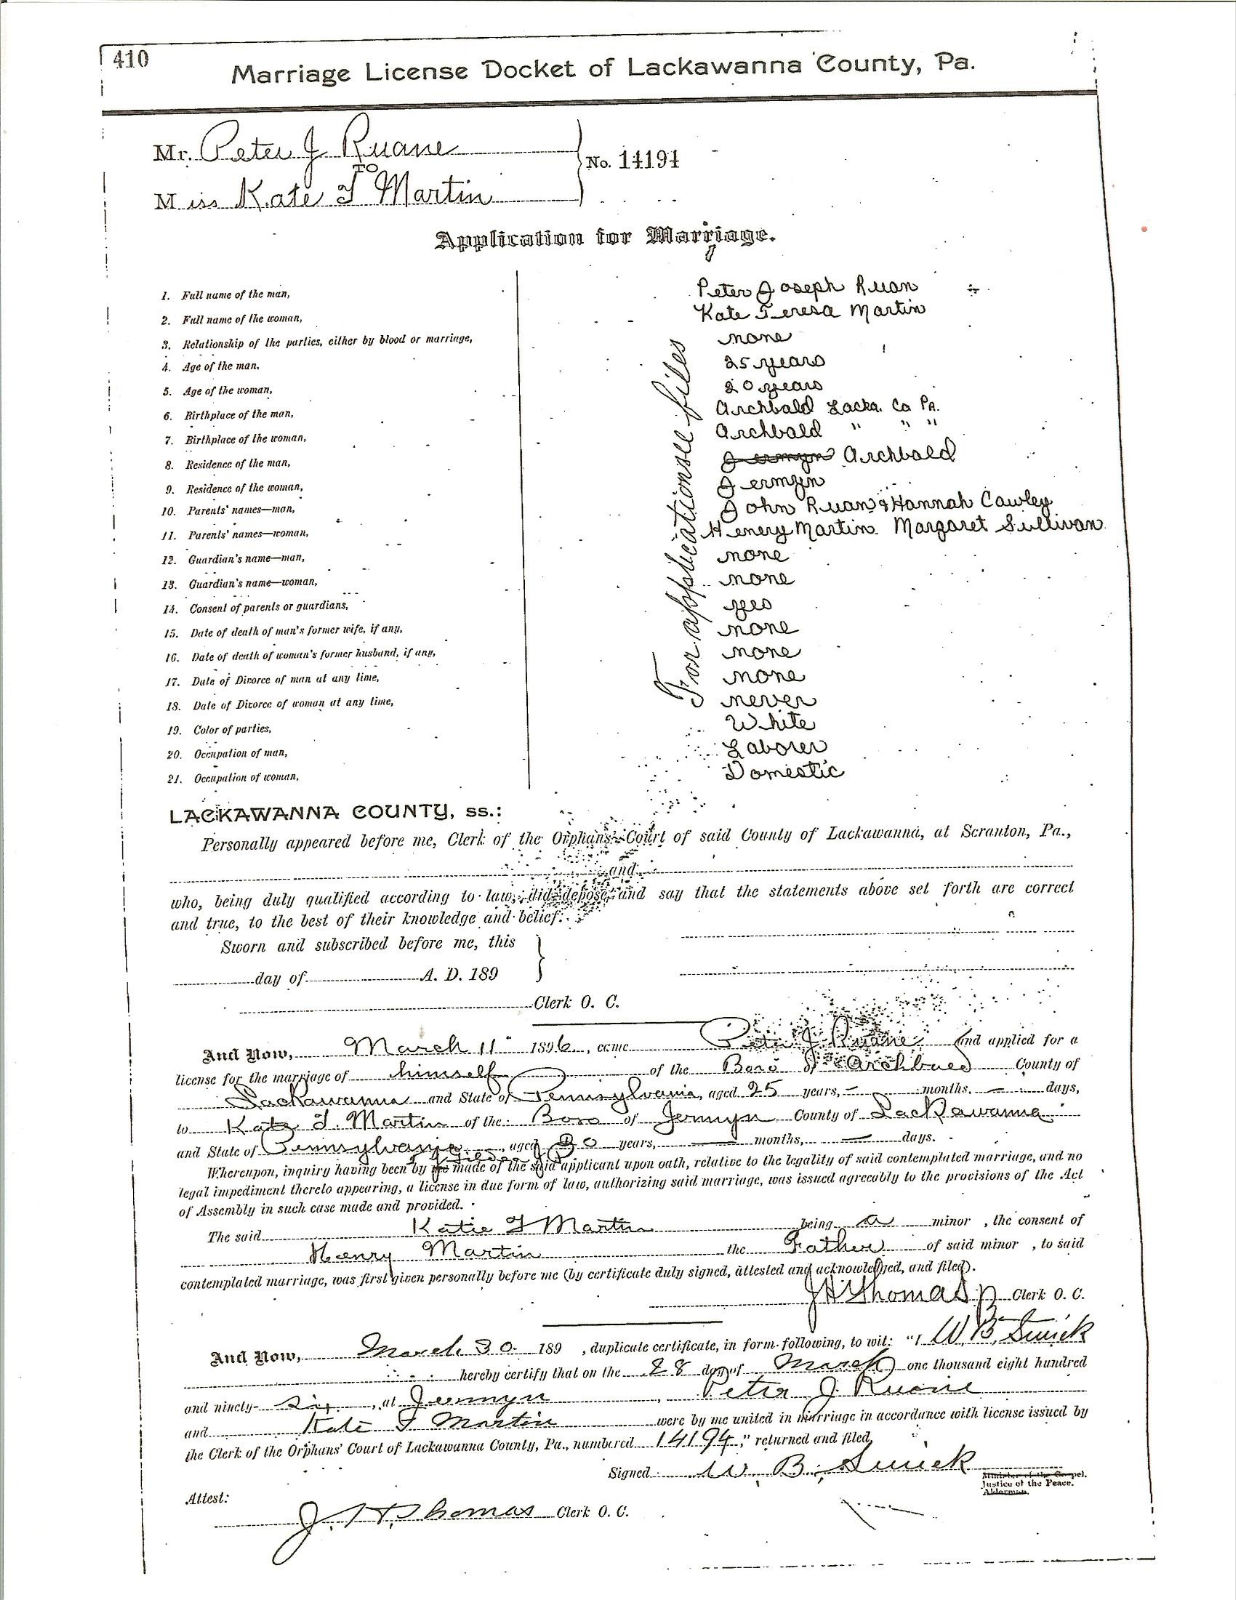 410
Marriage License Docket of Lackawanna County, Pa.
Mr. Peter J Ruane
TO
No. 14194
Miss Kate T Martin
Application for Marriage.
1. Full name of the man, Peter Joseph Ruan
2. Full name of the woman, Kate Teresa Martin
3. Relationship of the parties, either by blood or marriage, none
4. Age of the man, 25 years
5. Age of the woman, 20 years
6. Birthplace of the man, Archbald Lacka. Co Pa.
7. Birthplace of the woman, Archbald " " "
8. Residence of the man, Jermyn Archbald
9. Residence of the woman, Jermyn
10. Parents' names—man, John Ruan & Hannah Cawley
11. Parents' names—woman, Henery Martin Margaret Sullivan
12. Guardian's name—man, none
13. Guardian's name—woman, none
14. Consent of parents or guardians, yes
15. Date of death of man's former wife, if any, none
16. Date of death of woman's former husband, if any, none
17. Date of Divorce of man at any time, none
18. Date of Divorce of woman at any time, never
19. Color of parties, White
20. Occupation of man, Laborer
21. Occupation of woman, Domestic
For application see files
LACKAWANNA COUNTY, ss.:
Personally appeared before me, Clerk of the Orphans' Court of said County of Lackawanna, at Scranton, Pa.,
and
who, being duly qualified according to law, did depose and say that the statements above set forth are correct
and true, to the best of their knowledge and belief.
Sworn and subscribed before me, this
day of A. D. 189
Clerk O. C.
And Now, March 11 1896, came Peter J Ruane and applied for a
license for the marriage of himself of the Boro of Archbald County of
Lackawanna and State of Pennsylvania, aged 25 years, — months, — days,
to Kate T. Martin of the Boro of Jermyn County of Lackawanna
and State of Pennsylvania aged 20 years, — months, — days.
Whereupon, inquiry having been by me made of the said applicant upon oath, relative to the legality of said contemplated marriage, and no
legal impediment thereto appearing, a license in due form of law, authorizing said marriage, was issued agreeably to the provisions of the Act
of Assembly in such case made and provided.
The said Katie T Martin being a minor, the consent of
Henry Martin the Father of said minor, to said
contemplated marriage, was first given personally before me (by certificate duly signed, attested and acknowledged, and filed).
J H Thomas Clerk O. C.
And Now, March 30 189 , duplicate certificate, in form following, to wit: "I W B Swick
hereby certify that on the 28 day of March one thousand eight hundred
and ninety-six, at Jermyn, Peter J. Ruane
and Kate T Martin were by me united in marriage in accordance with license issued by
the Clerk of the Orphans' Court of Lackawanna County, Pa., numbered 14194," returned and filed,
Signed W. B. Swick
Minister of the Gospel.
Justice of the Peace.
Alderman.
Attest:
J. H. Thomas Clerk O. C.